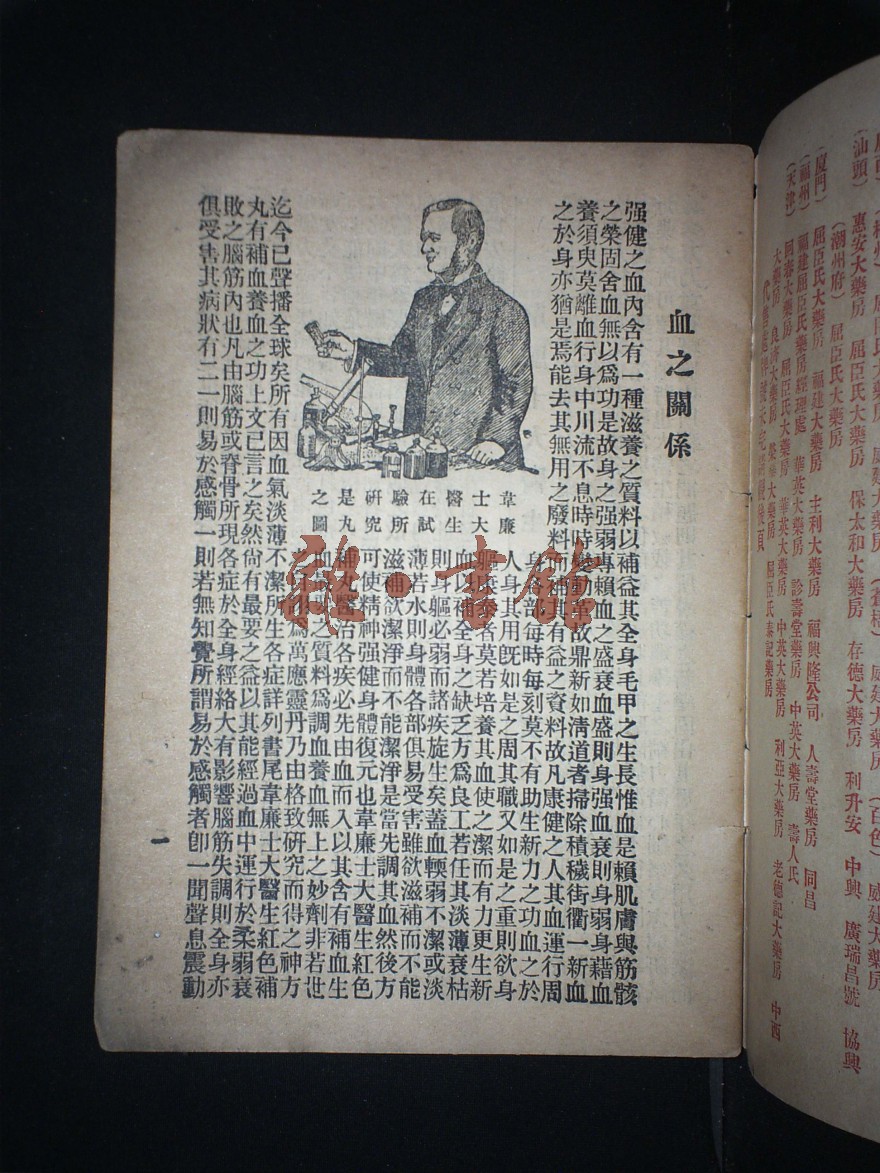 血之關係
强健之血內含有一種滋養之質料以補益其全身毛甲之生長惟血是賴肌膚與筋骸
之榮固舍血無以爲功是故身之强弱專賴血之盛衰血盛則身强血衰則身弱身藉血
養須臾莫離血行身中川流不息時時變動革故鼎新如淸道者掃除積穢街衢一新血
之於身亦猶是焉能去其無用之廢料而補其有益之資料故凡康健之人其血運行周
身各部每時每刻莫不有助生新力之功血之於
人身其用旣如是之周其職又如是之重則欲身
軀康泰者莫若培養其血使之潔而有力更生新
血以補全身之缺乏方爲良工若任其淡薄衰枯
則身軀必弱而諸疾旋生矣蓋血輭弱不潔或淡
薄若水則身體各部俱易受害雖欲滋補而不能
滋補欲潔淨而不能潔淨是當先調其血然後方
可使精神强健身體復元也韋廉士大醫生紅色
補丸醫治各疾必先由血而入以其含有補血生
血最要之質料爲調血養血無上之妙劑非若世
爲萬應靈丹乃由格致研究而得之神方
韋廉
士大
醫生
在試
驗所
研究
是丸
之圖
迄今已聲播全球矣所有因血氣淡薄不潔所生各症詳列書尾韋廉士大醫生紅色補
丸有補血養血之功上文已言之矣然尙有最要之益以其能經過血中運行於柔弱衰
敗之腦筋內也凡由腦筋或脊骨所現各症於全身經絡大有影響腦筋失調則全身亦
俱受害其病狀有二一則易於感觸一則若無知覺所謂易於感觸者卽一聞聲息震動
一
雅·古館
(汕頭) 惠安大藥房 屈臣氏大藥房 保太和大藥房 存德大藥房 利升安 中興 廣瑞昌號 協興
(潮州府) 屈臣氏大藥房
(廈門) 屈臣氏大藥房 福建大藥房 主利大藥房 福興隆公司 人壽堂藥房 同昌
(福州) 福建屈臣氏藥房經理處 華英大藥房 診壽堂藥房 中英大藥房 壽人氏
(天津) 同春大藥房 屈臣氏大藥房 華英大藥房 中英大藥房 利亞大藥房 老德記大藥房 中西
大藥房 良濟大藥房 屈臣氏泰記藥房